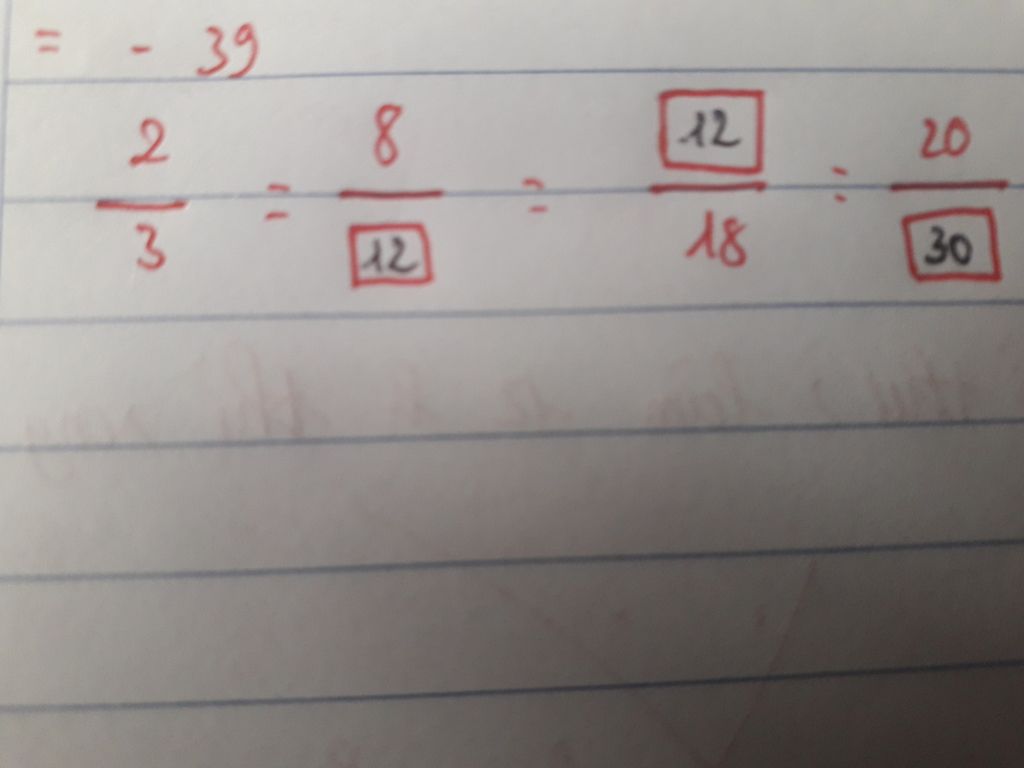 = - 39
2/3 = 8/12 = 12/18 = 20/30